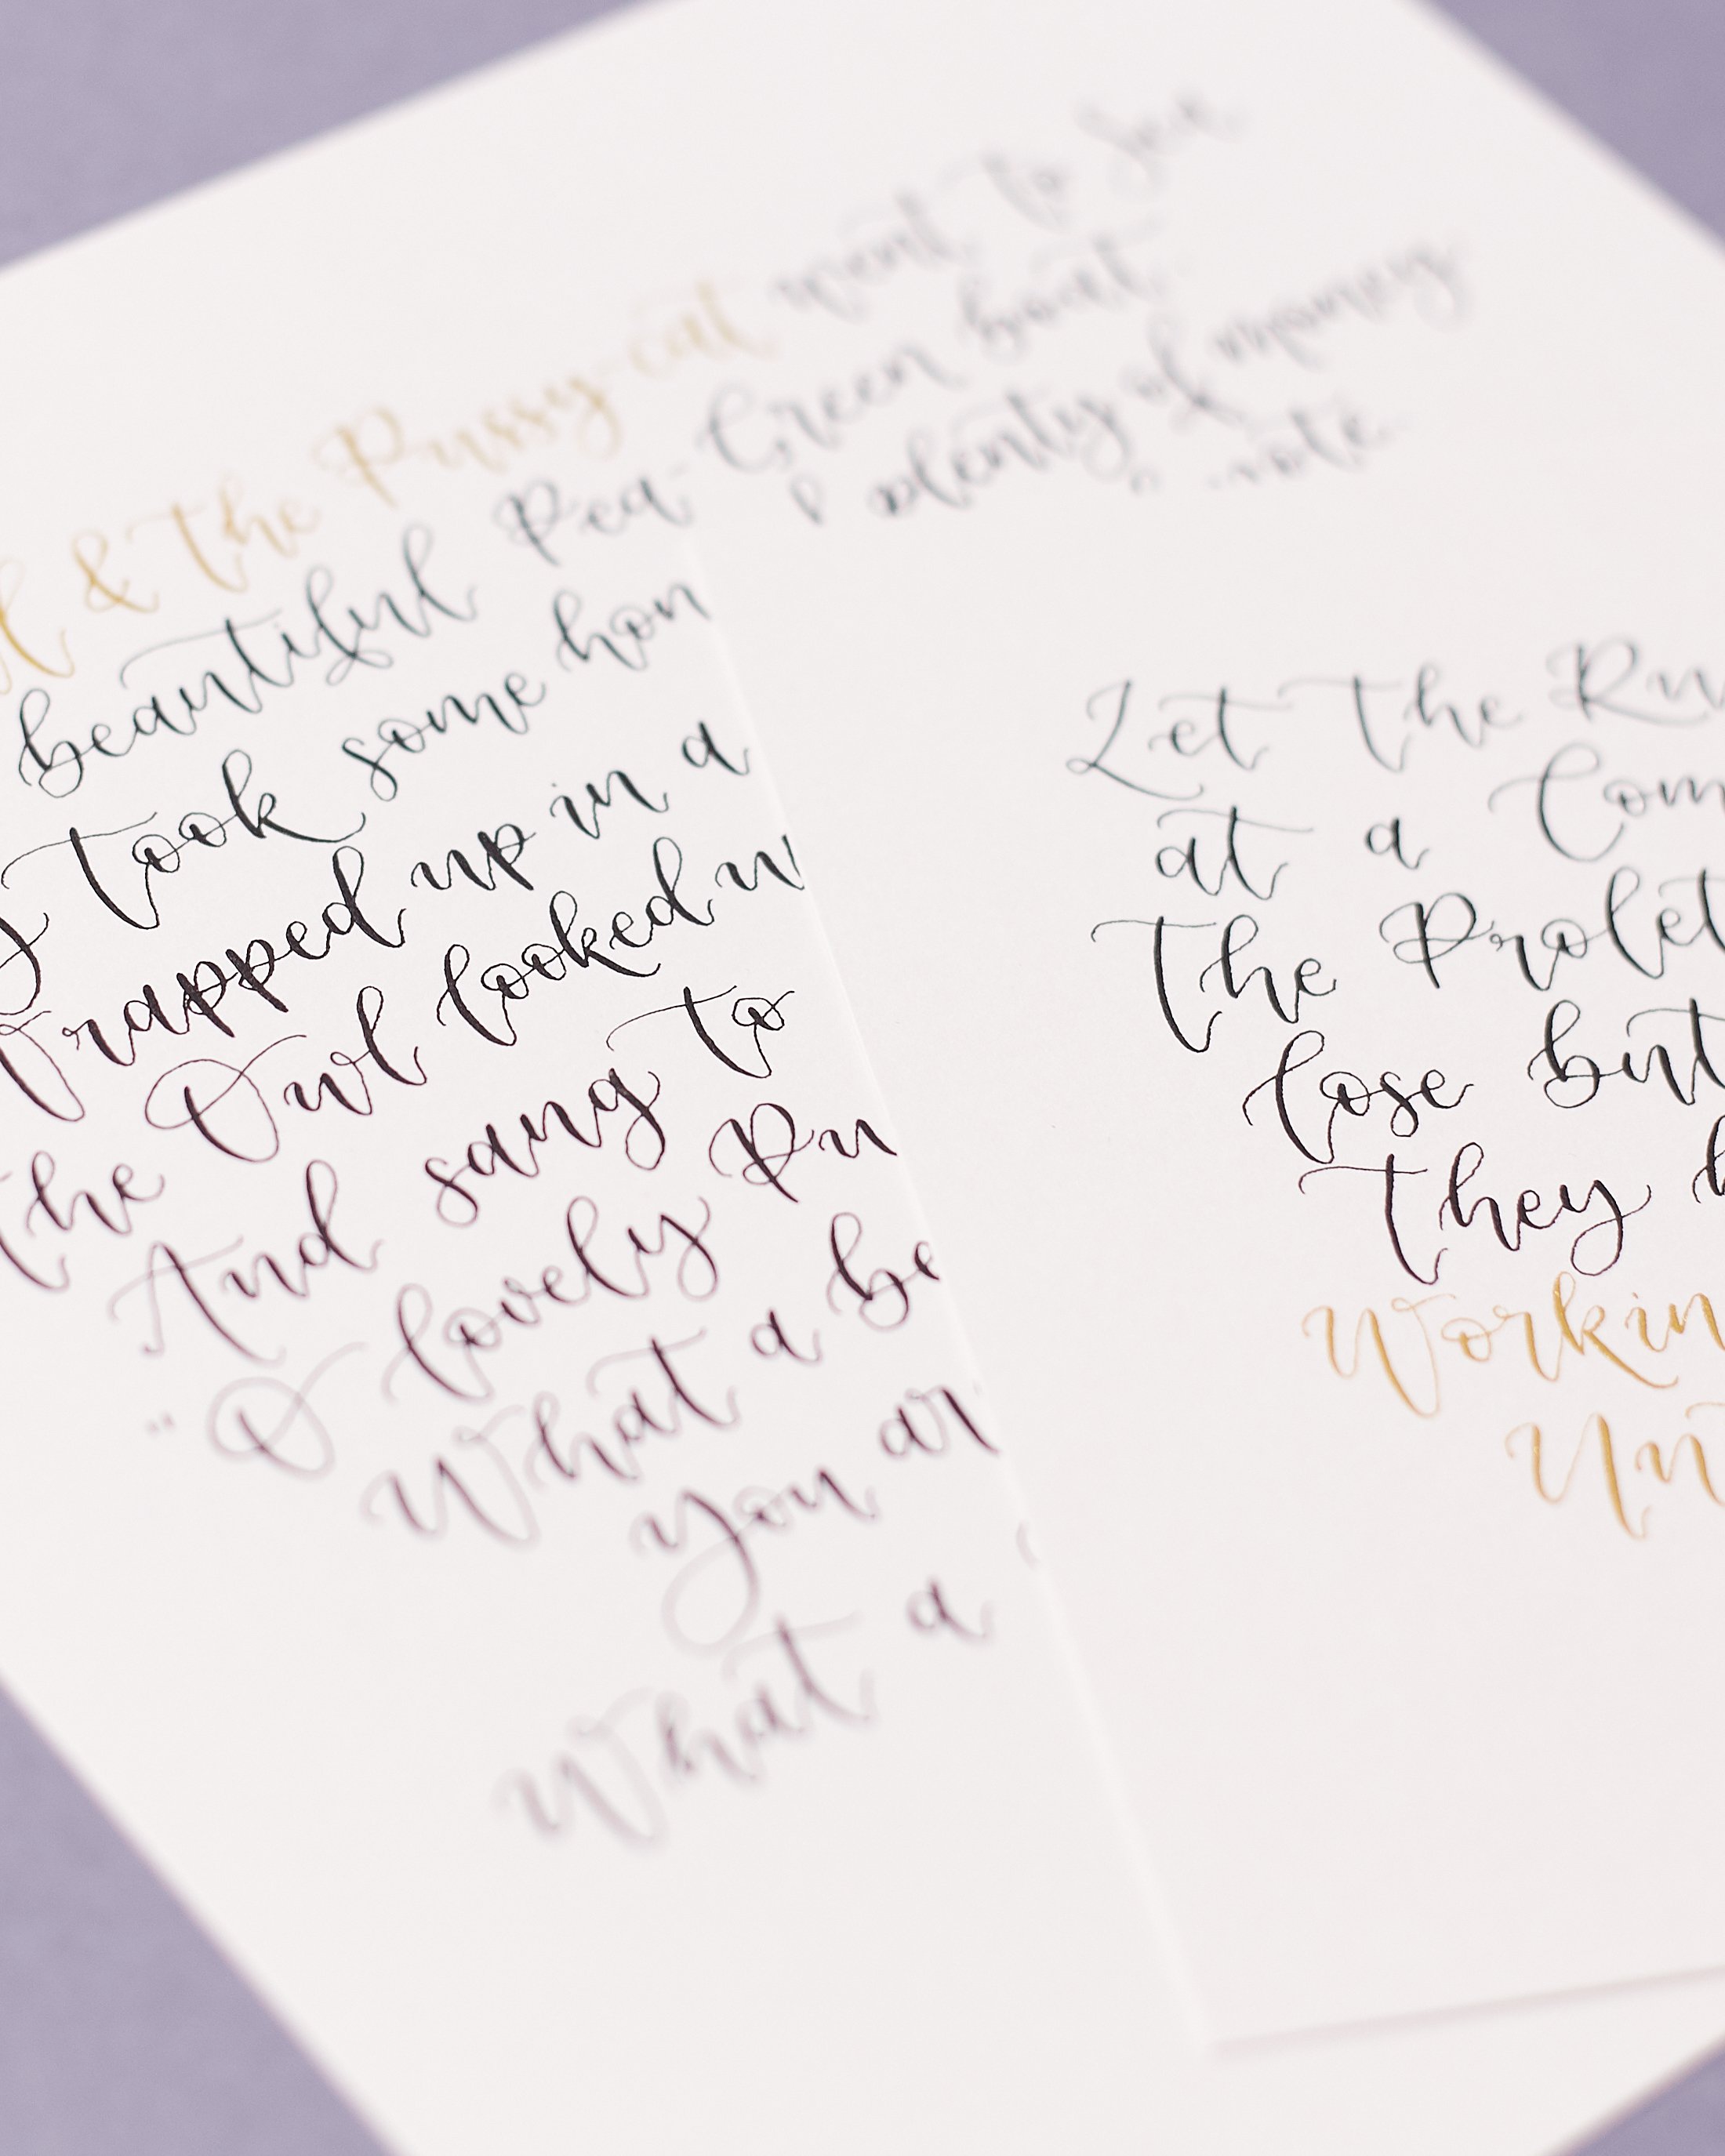 & the Pussy-cat went to Sea
beautiful Pea-Green boat
took some hon & plenty of money
rapped up in a note
the Owl looked
And sang to
"O lovely Pu
What a be
you ar
What a
Let the Ru
at a Com
The Prolet
lose but
They h
Workin
Un